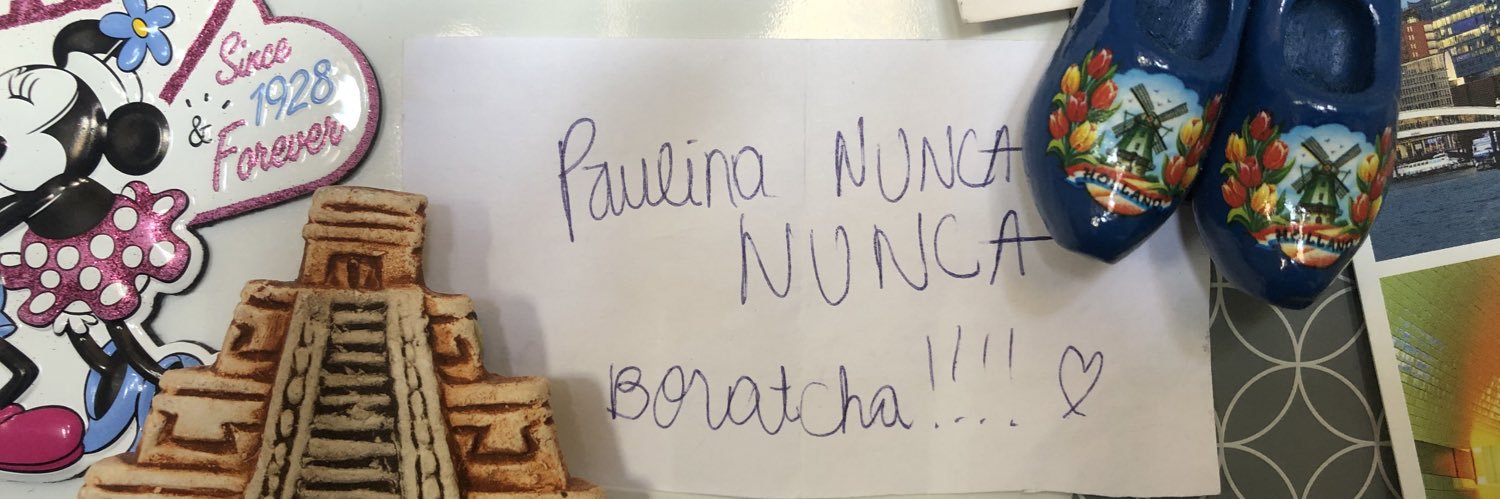 Since
1928
&
Forever
Paulina NUNCA
NUNCA
Boratcha!!!!
HOLLAND
HOLLAND